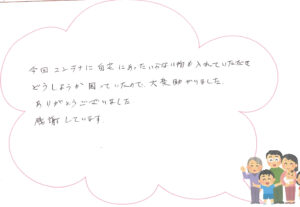 今回コンテナに自宅にあったいらない物も入れていただき
どうしようか困っていたので、大変助かりました。
ありがとうございました
感謝しています